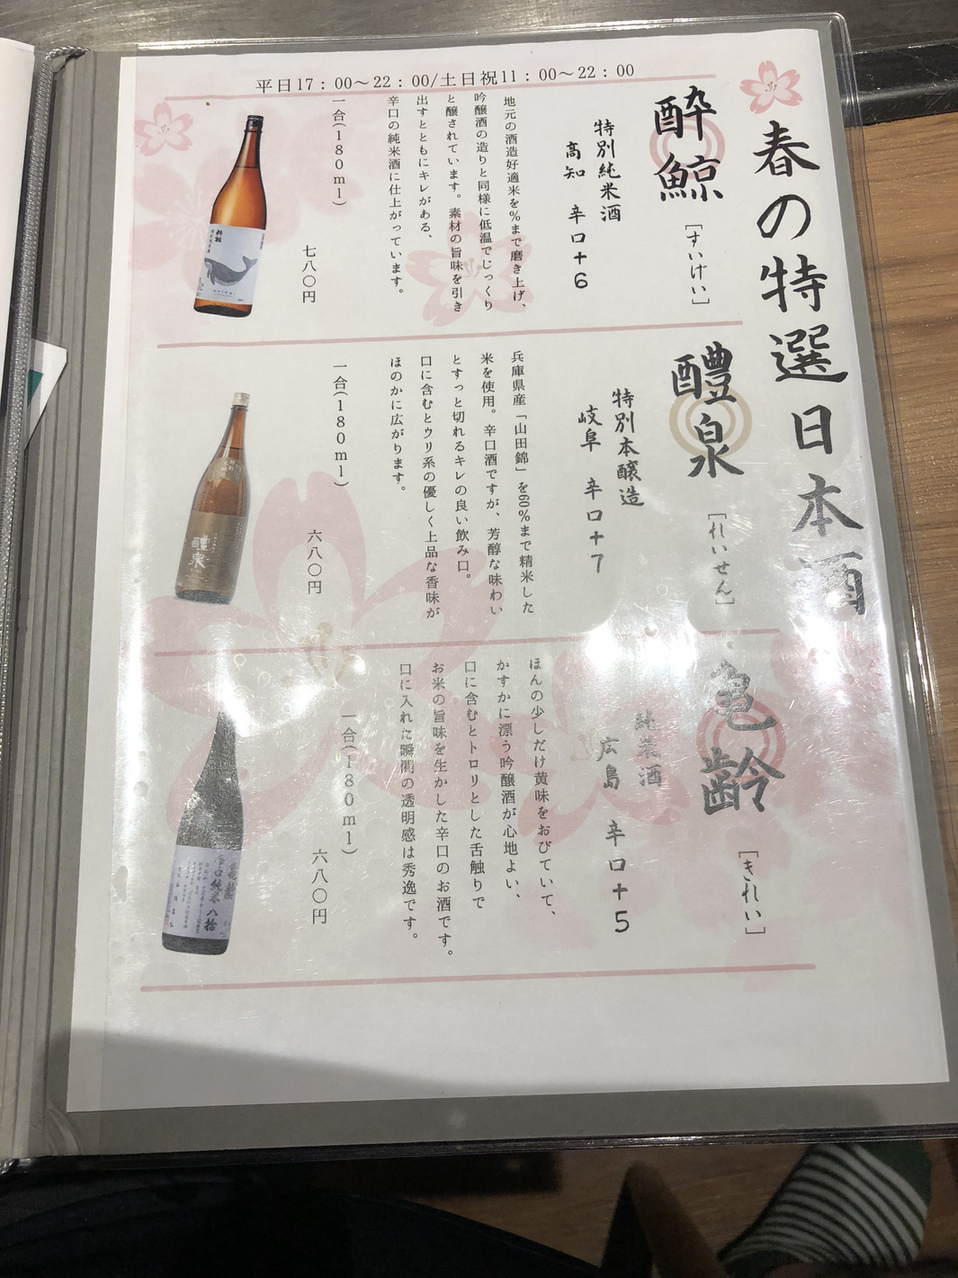 平日17：00～22：00/土日祝11：00～22：00
春の特選日本酒
酔鯨
［すいけい］
特別純米酒
高知　辛口＋6
地元の酒造好適米を%まで磨き上げ、
吟醸酒の造りと同様に低温でじっくり
と醸されています。素材の旨味を引き
出すとともにキレがある、
辛口の純米酒に仕上がっています。
一合(180ml)
七八〇円
醴泉
［れいせん］
特別本醸造
岐阜　辛口＋7
兵庫県産「山田錦」を60%まで精米した
米を使用。辛口酒ですが、芳醇な味わい
とすっと切れるキレの良い飲み口。
口に含むとウリ系の優しく上品な香味が
ほのかに広がります。
一合(180ml)
六八〇円
醴泉
亀齢
［きれい］
純米酒
広島　辛口＋5
ほんの少しだけ黄味をおびていて、
かすかに漂う吟醸酒が心地よい、
口に含むとトロリとした舌触りで
お米の旨味を生かした辛口のお酒です。
口に入れた瞬間の透明感は秀逸です。
一合(180ml)
六八〇円
亀齢
辛口純米八拾